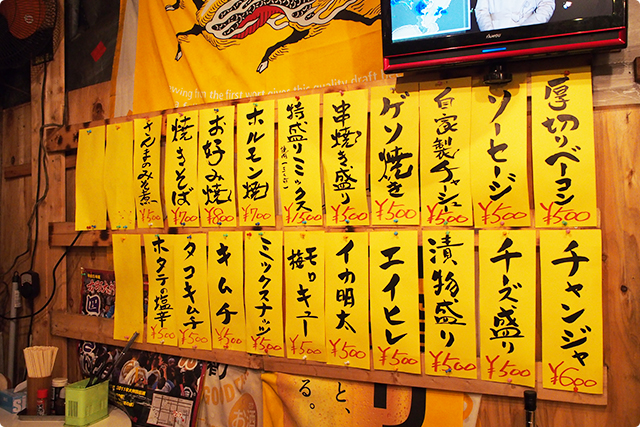 厚切りベーコン ¥500
ソーセージ ¥500
自家製チャーシュー ¥500
ゲソ焼き ¥500
串焼き盛り ¥500
特盛りミックス ¥1500
ホルモン焼 ¥700
お好み焼 ¥800
焼きそば ¥700
さんまのみそ煮 ¥500
チャンジャ ¥600
チーズ盛り ¥500
漬物盛り ¥500
エイヒレ ¥500
イカ明太 ¥500
梅モロキュー ¥500
ミックスナッツ ¥500
キムチ ¥500
タコキムチ ¥500
ホタテの塩辛 ¥500
owing for the first wort gives this quality draft
と、
る。